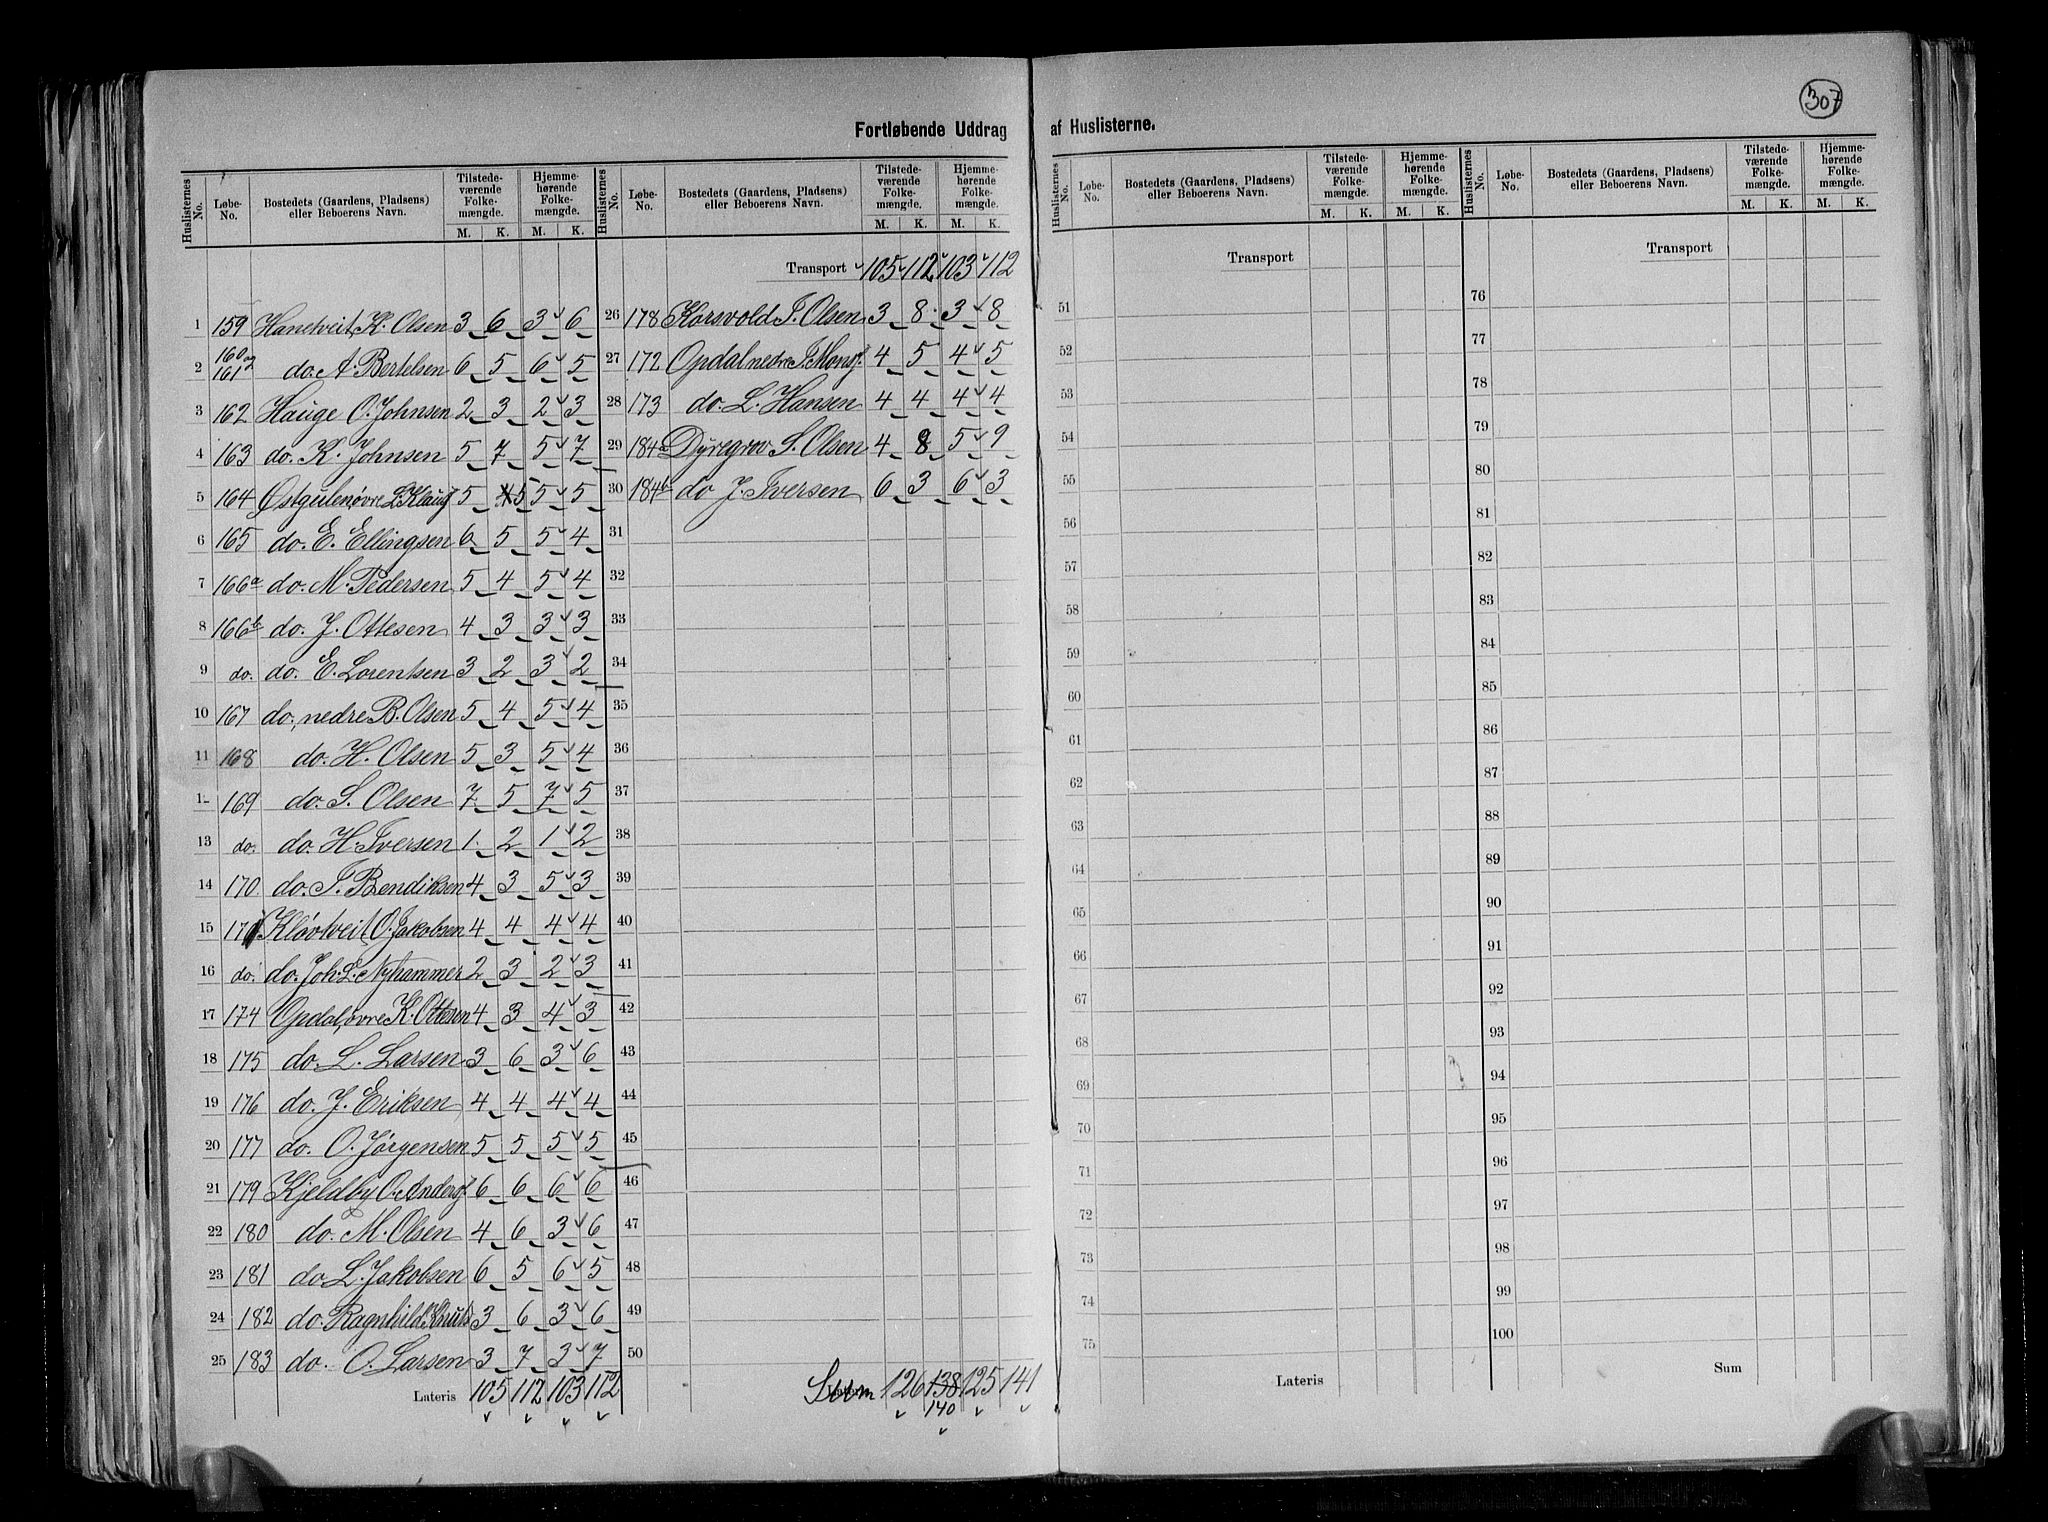 307
Fortløbende Uddrag af Huslisterne.
Huslisternes No. Løbe-No. Bostedets (Gaardens, Pladsens) eller Beboerens Navn. Tilstedeværende Folkemængde. M. K. Hjemmehørende Folkemængde. M. K.
1 159 Hanetveit, K. Olsen 3 6 3 6
2 160 og 161 do. A. Bertelsen 6 5 6 5
3 162 Hauge O. Johnsen 2 3 2 3
4 163 do. K. Johnsen 5 7 5 7
5 164 Østgulen øvre L. Klausʃ 5 5 5 5
6 165 do. E. Ellingsen 6 5 5 4
7 166a do. M. Pedersen 5 4 5 4
8 166b do. J. Ottesen 4 3 3 3
9 do. do. E. Lorentsen 3 2 3 2
10 167 do. nedre B. Olsen 5 4 5 4
11 168 do. H. Olsen 5 3 5 4
12 169 do. S. Olsen 7 5 7 5
13 do. do. H. Iversen 1 2 1 2
14 170 do. T. Bendiksen 4 3 5 3
15 171 Kløvtveit O. Jakobsen 4 4 4 4
16 do. do. Joh. L. Nyhammer 2 3 2 3
17 174 Opdal, øvre K. Ottesen 4 3 4 3
18 175 do. L. Larsen 3 6 3 6
19 176 do. J. Eriksen 4 4 4 4
20 177 do. O. Jørgensen 5 5 5 5
21 179 Kjeldby O. Andersʃ 6 6 6 6
22 180 do. M. Olsen 4 6 3 6
23 181 do L. Jakobsen 6 5 6 5
24 182 do. Ragnhild Knuts 3 6 3 6
25 183 do. O. Larsen 3 7 3 7
Lateris 105 112 103 112
Huslisternes No. Løbe-No. Bostedets (Gaardens, Pladsens) eller Beboerens Navn. Tilstedeværende Folkemængde. M. K. Hjemmehørende Folkemængde. M. K.
Transport 105 112 103 112
26 178 Korsvold T. Olsen 3 8 3 8
27 172 Opdal nedre T. Monsʃ 4 5 4 5
28 173 do. L. Hansen 4 4 4 4
29 184a Dyregrov S. Olsen 4 8 5 9
30 184b do J. Iversen 6 3 6 3
31
32
33
34
35
36
37
38
39
40
41
42
43
44
45
46
47
48
49
50
Sum 126 138 125 141
140
Huslisternes No. Løbe-No. Bostedets (Gaardens, Pladsens) eller Beboerens Navn. Tilstedeværende Folkemængde. M. K. Hjemmehørende Folkemængde. M. K.
Transport
51
52
53
54
55
56
57
58
59
60
61
62
63
64
65
66
67
68
69
70
71
72
73
74
75
Lateris
Huslisternes No. Løbe-No. Bostedets (Gaardens, Pladsens) eller Beboerens Navn. Tilstedeværende Folkemængde. M. K. Hjemmehørende Folkemængde. M. K.
Transport
76
77
78
79
80
81
82
83
84
85
86
87
88
89
90
91
92
93
94
95
96
97
98
99
100
Sum